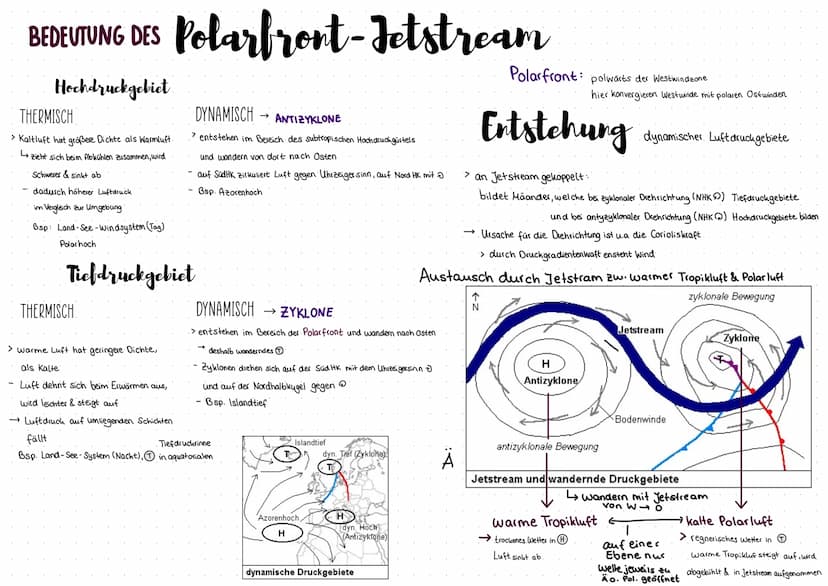 BEDEUTUNG DES Polarfront-Jetstream
Polarfront: polwärts der Westwindzone
hier konvergieren Westwinde mit polaren Ostwinden
Hochdruckgebiet
THERMISCH
> Kaltluft hat größere Dichte als Warmluft
↳ zieht sich beim Abkühlen zusammen, wird
schwerer & sinkt ab
- dadurch höherer Luftdruck
im Vergleich zur Umgebung
Bsp: Land-See-Windsystem (Tag)
Polarhoch
DYNAMISCH → ANTIZYKLONE
> entstehen im Bereich des subtropischen Hochdruckgürtels
und wandern von dort nach Osten
- auf SüdHK zirkuliert Luft gegen Uhrzeigersinn, auf Nord HK mit ↻
- Bsp. Azorenhoch
Entstehung dynamischer Luftdruckgebiete
> an Jetstream gekoppelt:
bildet Mäander, welche bei zyklonaler Drehrichtung (NHK ↺) Tiefdruckgebiete
und bei antizyklonaler Drehrichtung (NHK ↻) Hochdruckgebiete bilden
→ Ursache für die Drehrichtung ist u.a die Corioliskraft
> durch Druckgradientenkraft ensteht Wind
Tiefdruckgebiet
THERMISCH
> warme Luft hat geringere Dichte,
als Kalte
- Luft dehnt sich beim Erwärmen aus,
wird leichter & steigt auf
→ Luftdruck auf umliegenden Schichten
fällt
Bsp. Land-See-System (Nacht), Tiefdruckrinne
Ⓣ in äquatorialen
DYNAMISCH → ZYKLONE
> entstehen im Bereich der Polarfront und wandern nach Osten
→ deshalb wanderndes Ⓣ
- Zyklonen drehen sich auf der SüdHK mit dem Uhrzeigersinn ↻
und auf der Nordhalbkugel gegen ↺
- Bsp. Islandtief
Islandtief
T
dyn. Tief (Zyklone)
T
Azorenhoch
H
H
dyn. Hoch
(Antizyklone)
dynamische Druckgebiete
Austausch durch Jetstram zw. warmer Tropikluft & Polarluft
N
zyklonale Bewegung
Jetstream
Zyklone
T
H
Antizyklone
Bodenwinde
antizyklonale Bewegung
Ä
Jetstream und wandernde Druckgebiete
↳ wandern mit Jetstream
von W → O
warme Tropikluft ↔ kalte Polarluft
→ trockenes Wetter in Ⓗ
Luft sinkt ab
auf einer
Ebene nur
Welle jeweils zu
Ä o. Pol. geöffnet
> regnerisches Wetter in Ⓣ
warme Tropikluft steigt auf, wird
abgekühlt & in Jetstream aufgenommen